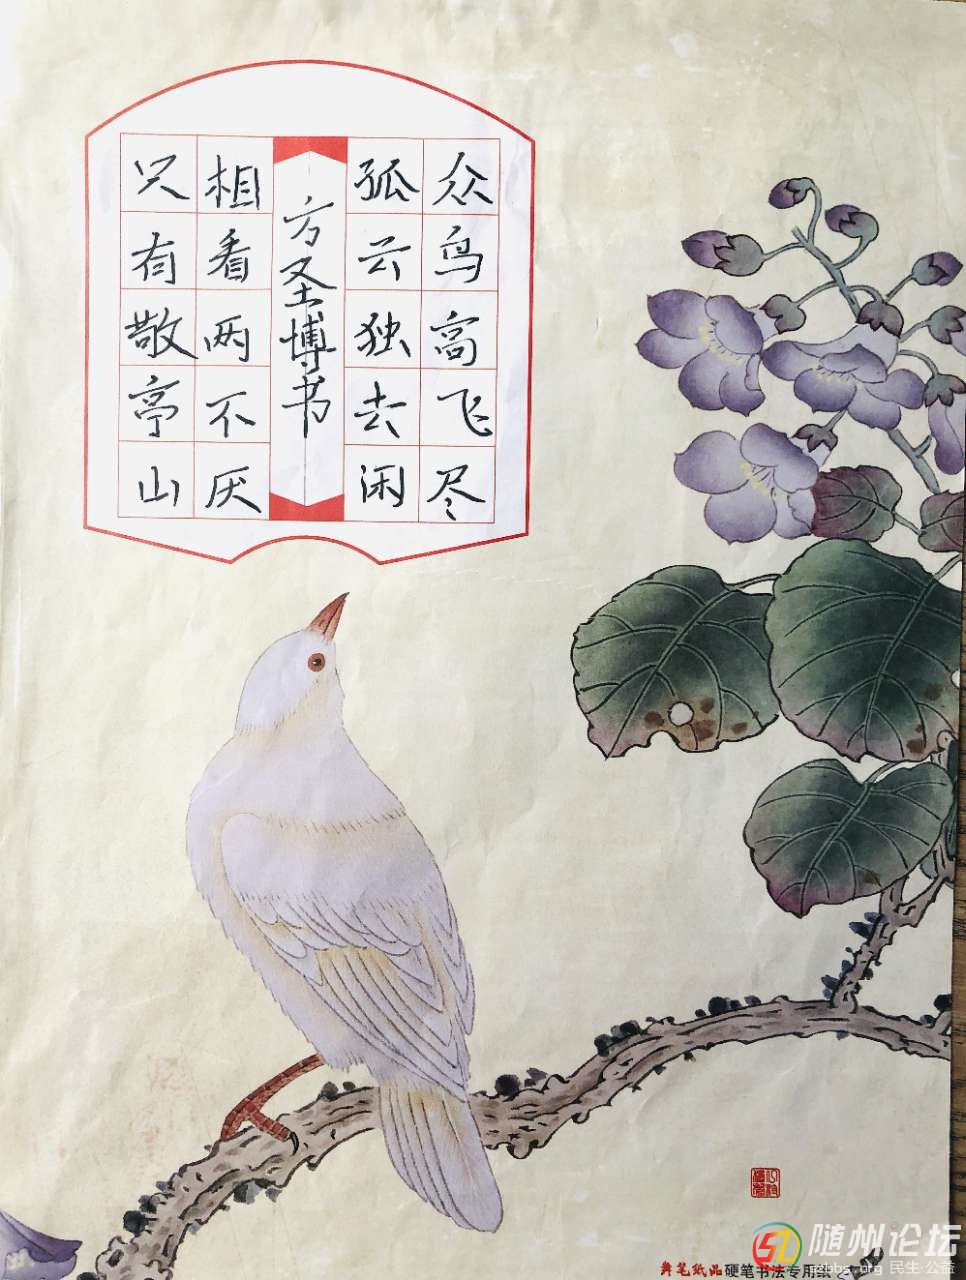 众鸟高飞尽
孤云独去闲
方圣博书
相看两不厌
只有敬亭山
舞笔纸品 硬笔书法专用纸
随州论坛
szbbs.org 民生·公益